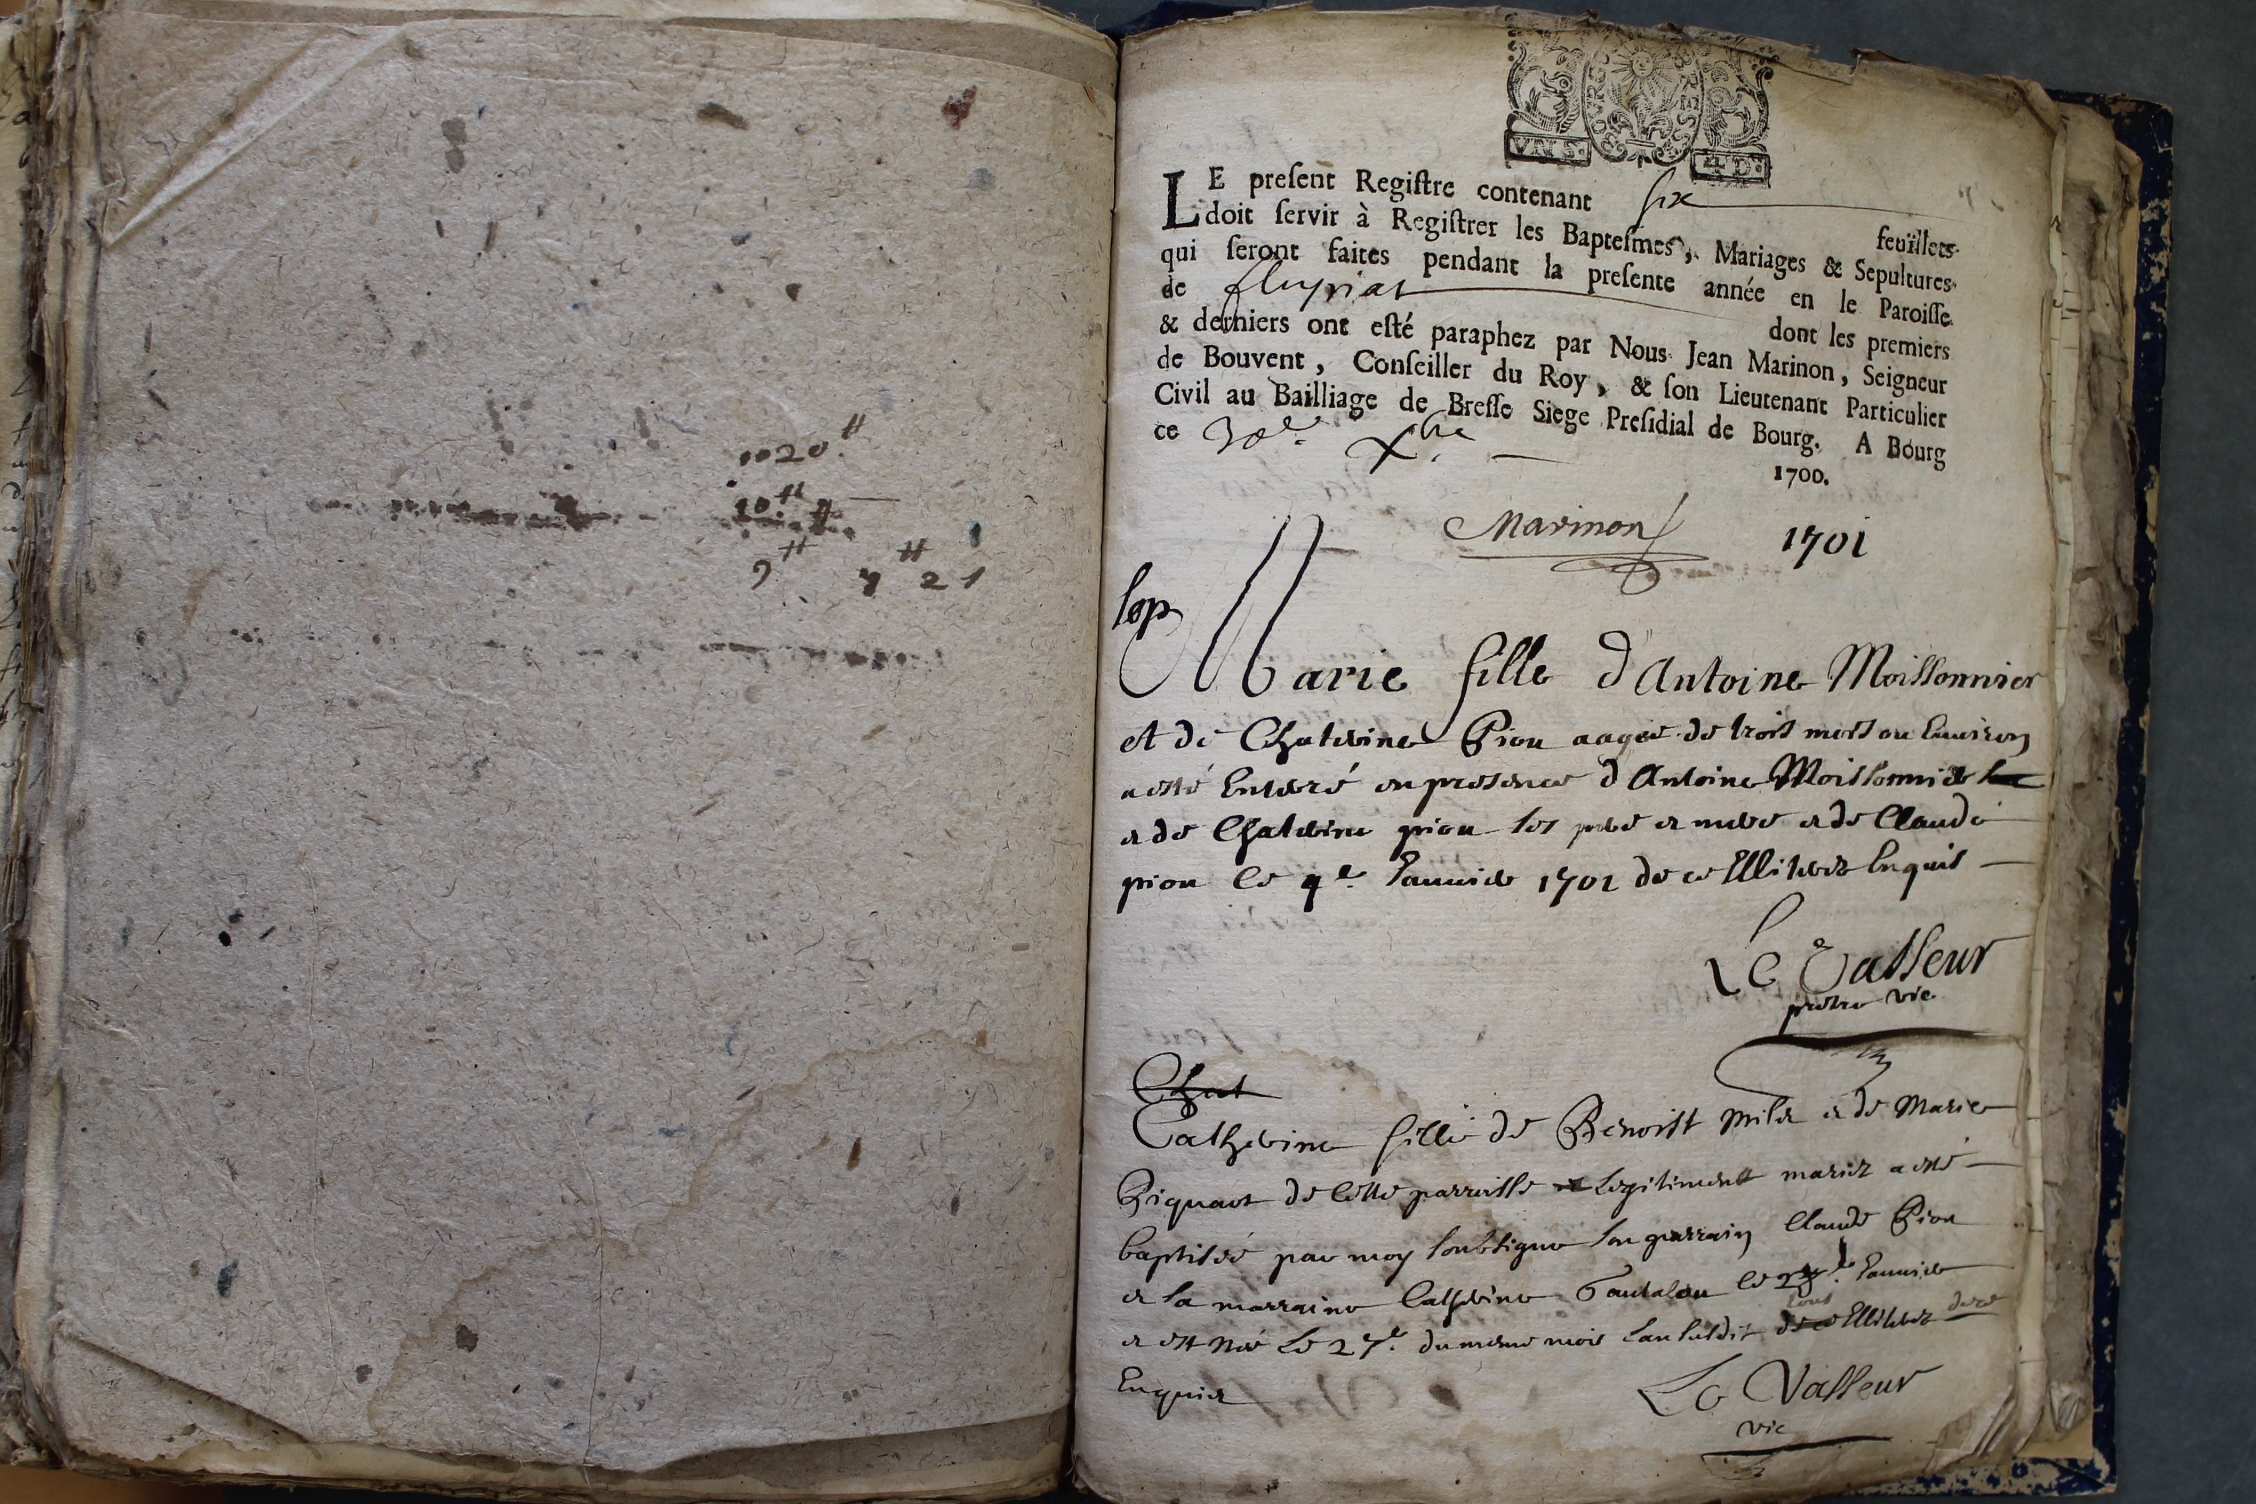 1020.#
10 # #
9 # 4 # 21
BOURG BRESSE
VN S. 4 D.
LE preſent Regiſtre contenant ſix feuïllets
doit ſervir à Regiſtrer les Bapteſmes, Mariages & Sepultures
qui ſeront faites pendant la preſente année en le Paroiſſe
de Cluyriat dont les premiers
& derniers ont eſté paraphez par Nous Jean Marinon, Seigneur
de Bouvent, Conſeiller du Roy, & ſon Lieutenant Particulier
Civil au Bailliage de Breſſe Siege Preſidial de Bourg. A Bourg
ce 30e. Xbre 1700.
Marinon
1701
sep
Marie fille d'Antoine Moissonnier
et de Chaterine Piou aagée de trois mois ou Environ
a esté Enterré en presence d Antoine Moissonnier
et de Chaterine piou ses pere et mere et de Claude
piou le 4e. Janvier 1701 de ce Illiterez Enquis
Le Vasseur
pretre vic
Chat
Catherine fille de Benoist Milet et de Marie
Piquart de Cette parroisse Legitiment mariez a esté
baptisée par moy soubsigne son parrain Claude Piou
et la marraine Catherine le Janvier
et est née Le 27e. du meme mois L'an susdit tous Illiterez de ce
Enquis
Le Vasseur
vic